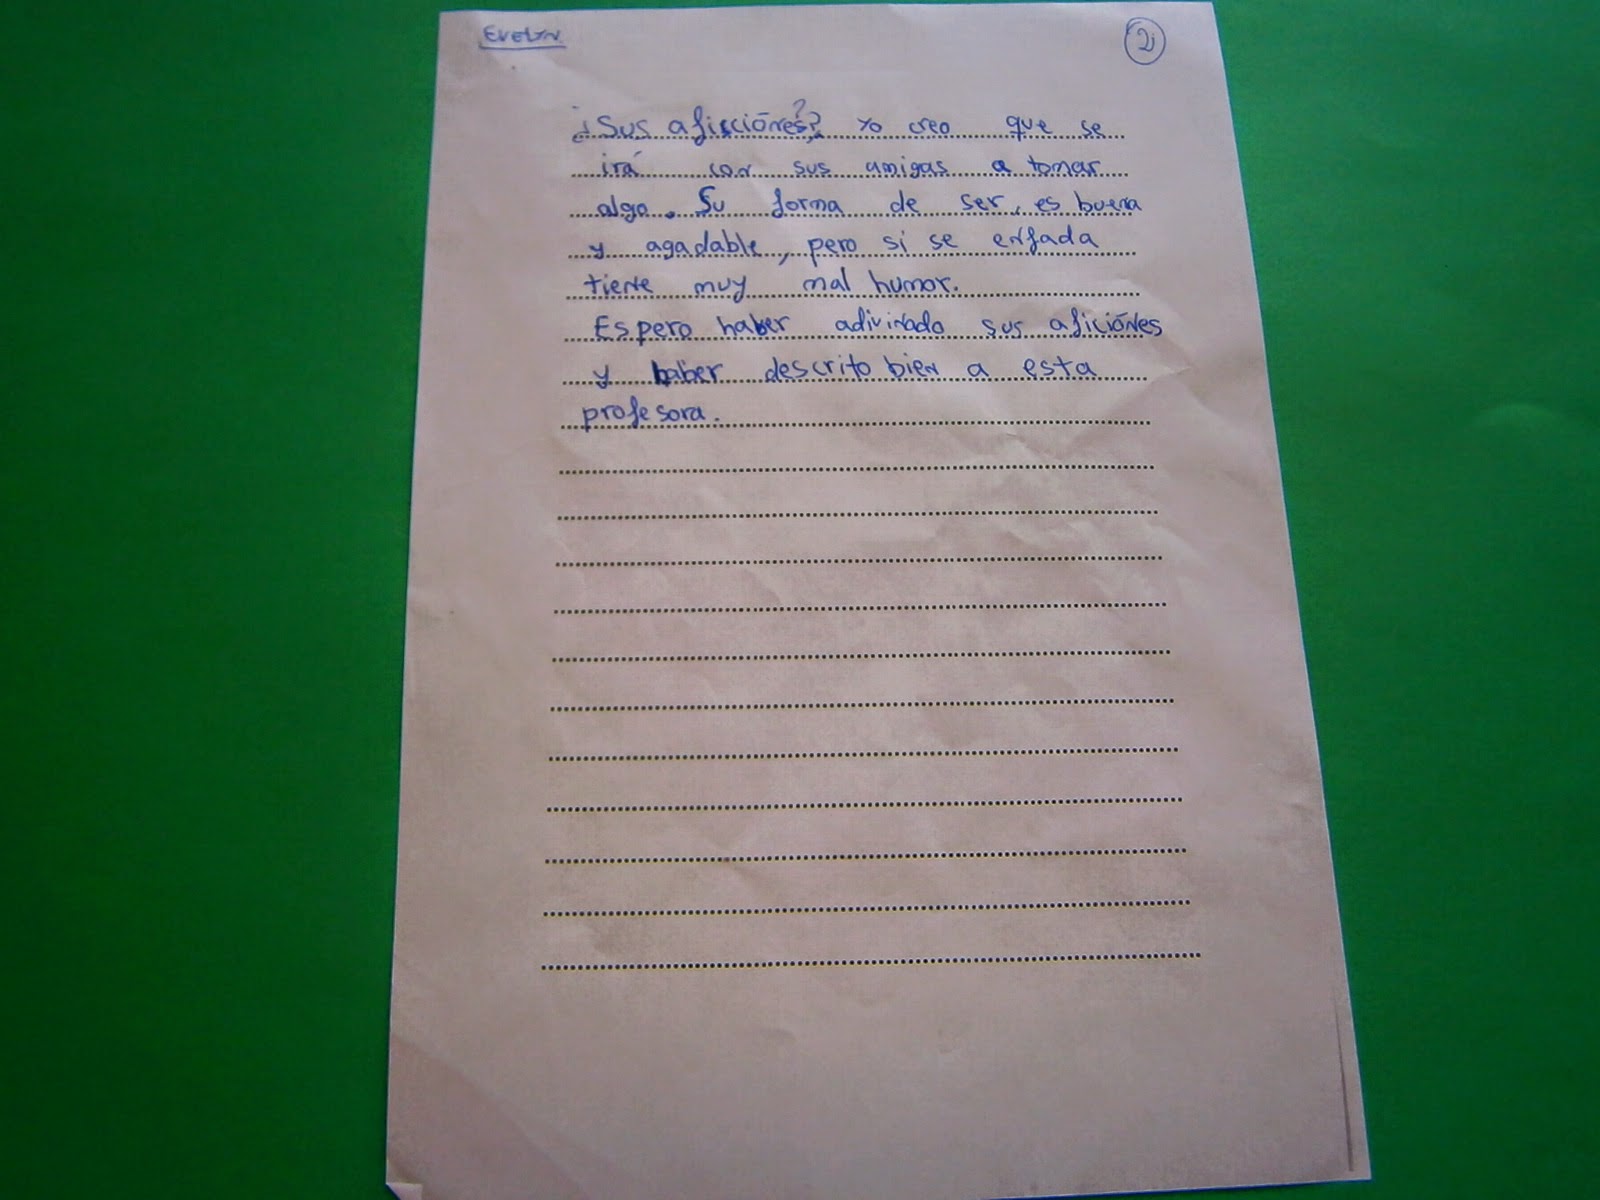 EVELYN
2
¿Sus aficciónes? Yo creo que se
irá con sus amigas a tomar
algo. Su forma de ser, es buena
y agadable, pero si se enfada
tiene muy mal humor.
Espero haber adivinado sus aficiónes
y haber descrito bien a esta
profesora.